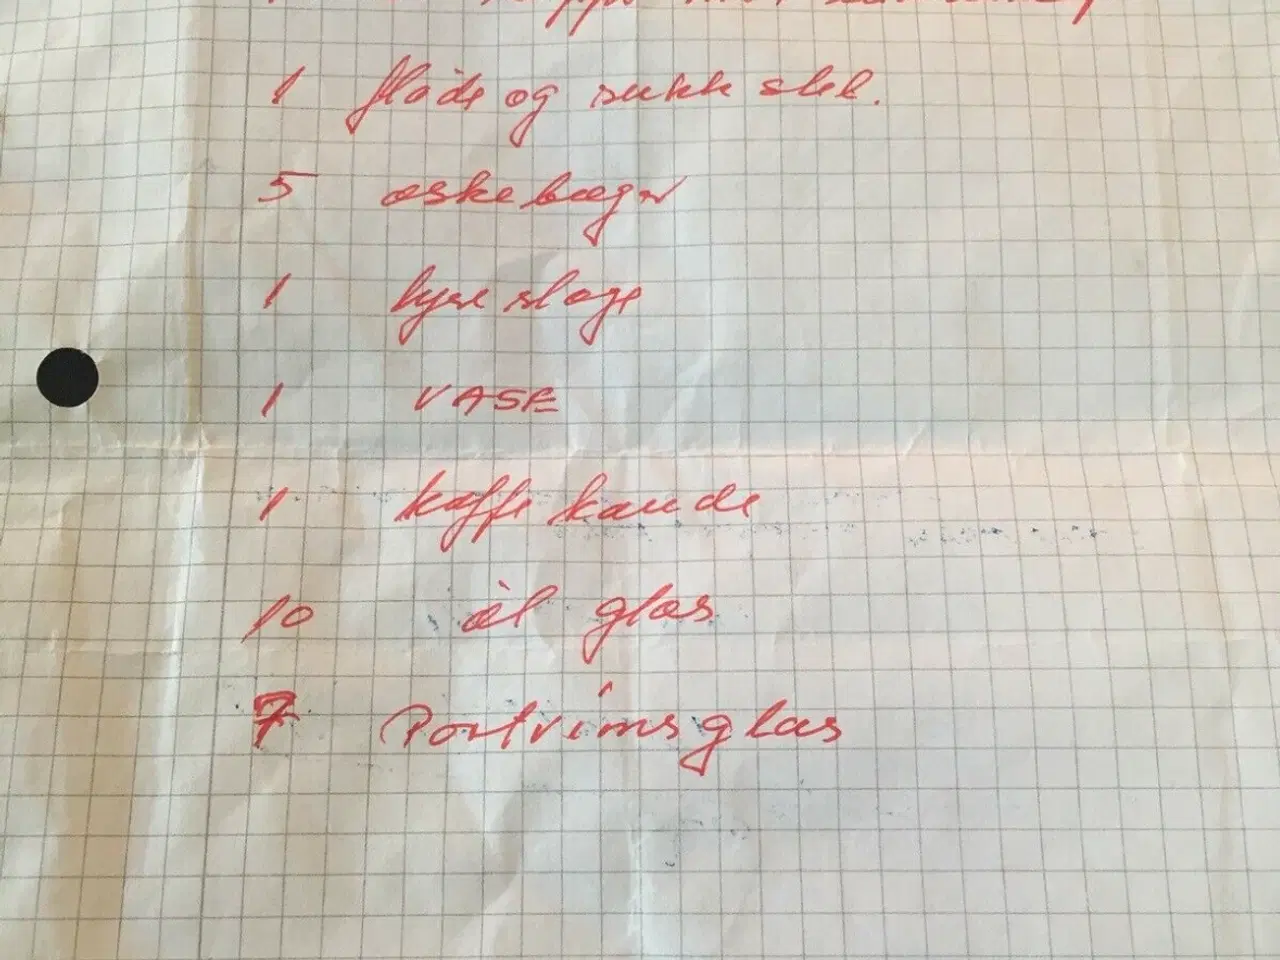 1 fløde og sukk skl.
5 æskebæger
1 lyseslage
1 VASE
1 kaffekande
10 øl glas
7 Portvinsglas